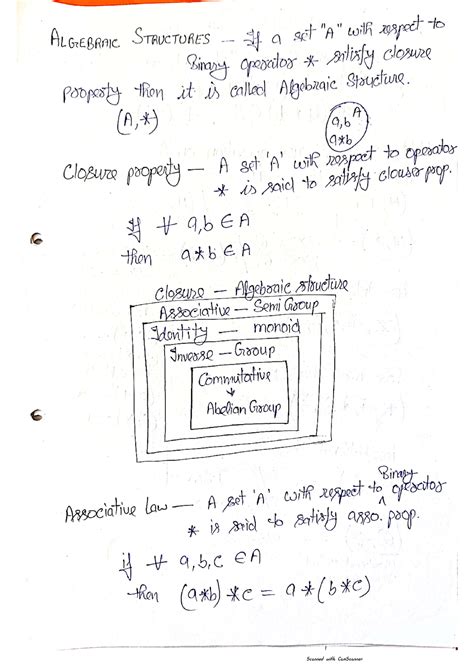 ALGEBRAIC STRUCTURES -- If a set "A" with respect to
Binary operator * satisfy closure
property then it is called Algebraic Structure.
(A, *)
A
a,b
a*b
Closure property — A set 'A' with respect to operator
* is said to satisfy clouser prop.
If ∀ a,b ∈ A
then a*b ∈ A
Closure — Algebraic structure
Associative — Semi Group
Identity — monoid
Inverse — Group
Commutative
↓
Abelian Group
Associative law — A set 'A' with respect to Binary operator
* is said to satisfy asso. prop.
if ∀ a,b,c ∈ A
then (a*b)*c = a*(b*c)
Scanned with CamScanner